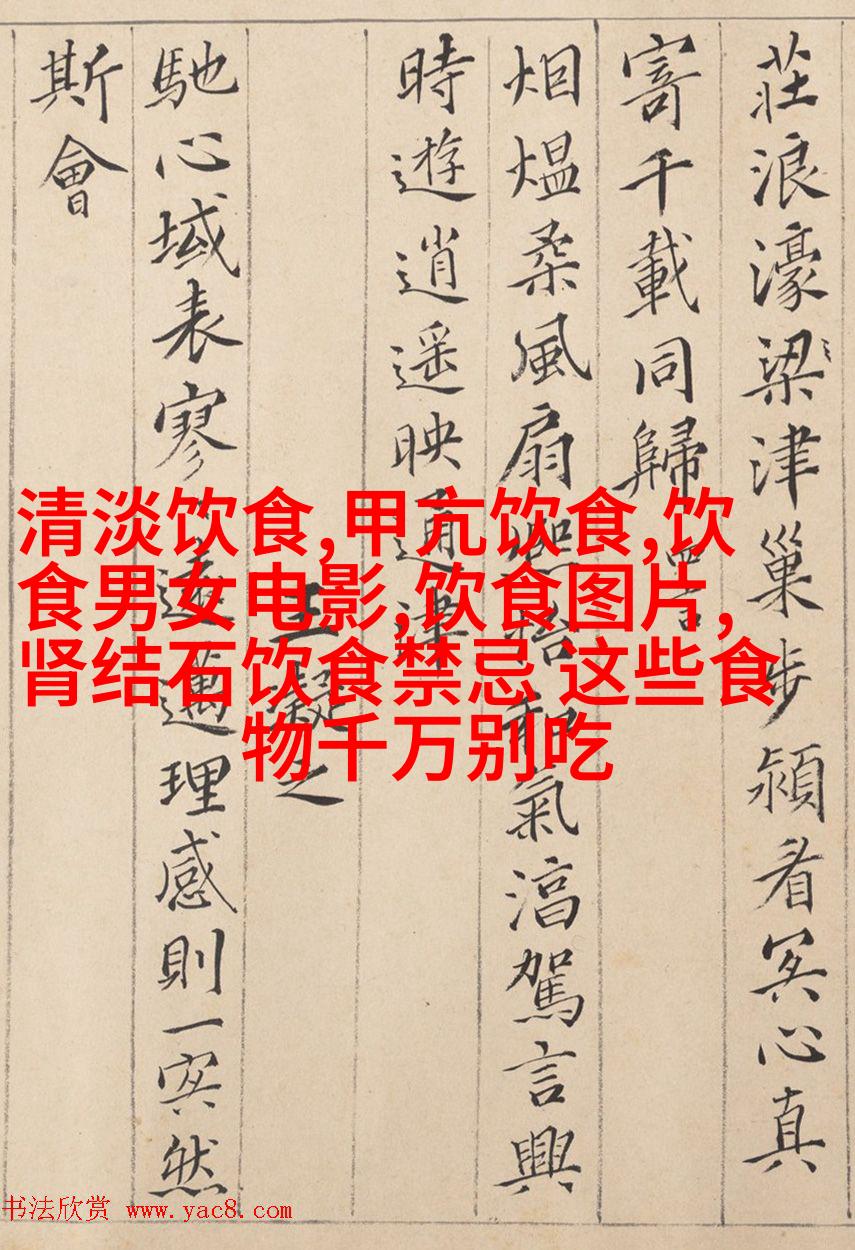 莊浪濠梁津巢步潁眉冥心真
寄千載同歸 四言
烟熅柔風扇熙怡和氣淳駕言興
時遊逍遥映通津
王凝之
馳心域表寥〻遠邁理感則一冥然
斯會
清淡饮食,甲亢饮食,饮
食男女电影,饮食图片,
肾结石饮食禁忌 这些食
物千万别吃
书法欣赏 www.yac8.com